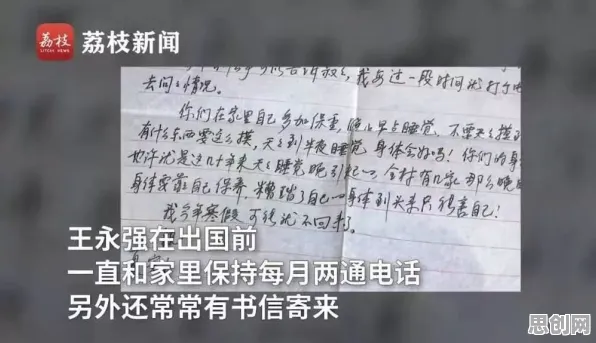 荔枝 荔枝新闻
LITCHI NEWS
去问了情况。
你们在家里自己多加保重,晚上早点睡觉,不要天天摸
有什么东西要这么摸,天天到半夜睡觉,身体会好吗!你们的身
也许就是这几十年来天天睡觉晚引起一 全村有几家 那么晚
身体要靠自己保养,糟蹋了自己一身体到头来只得害自己!
我今年寒假可能就不回来了。
王永强在出国前
一直和家里保持每月两通电话
另外还常常有书信寄来
思创网